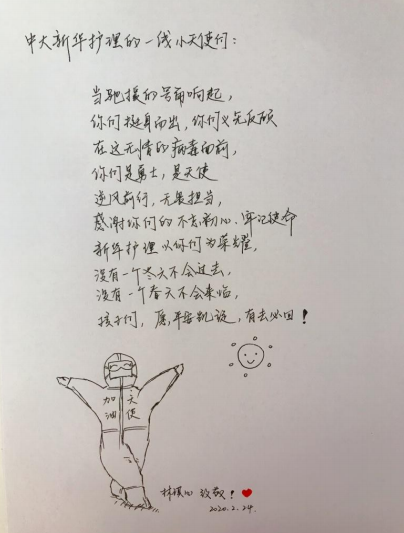 中大新华护理的一线小天使们：
当驰援的号角响起，
你们挺身而出，你们义无反顾
在这无情的病毒面前，
你们是勇士，是天使
逆风前行，无畏担当，
感谢你们的不忘初心、牢记使命
新华护理以你们为荣耀，
没有一个冬天不会过去，
没有一个春天不会来临，
孩子们，愿平安凯旋，有去必回！
加油
天使
林 致敬！
2020.2.24.